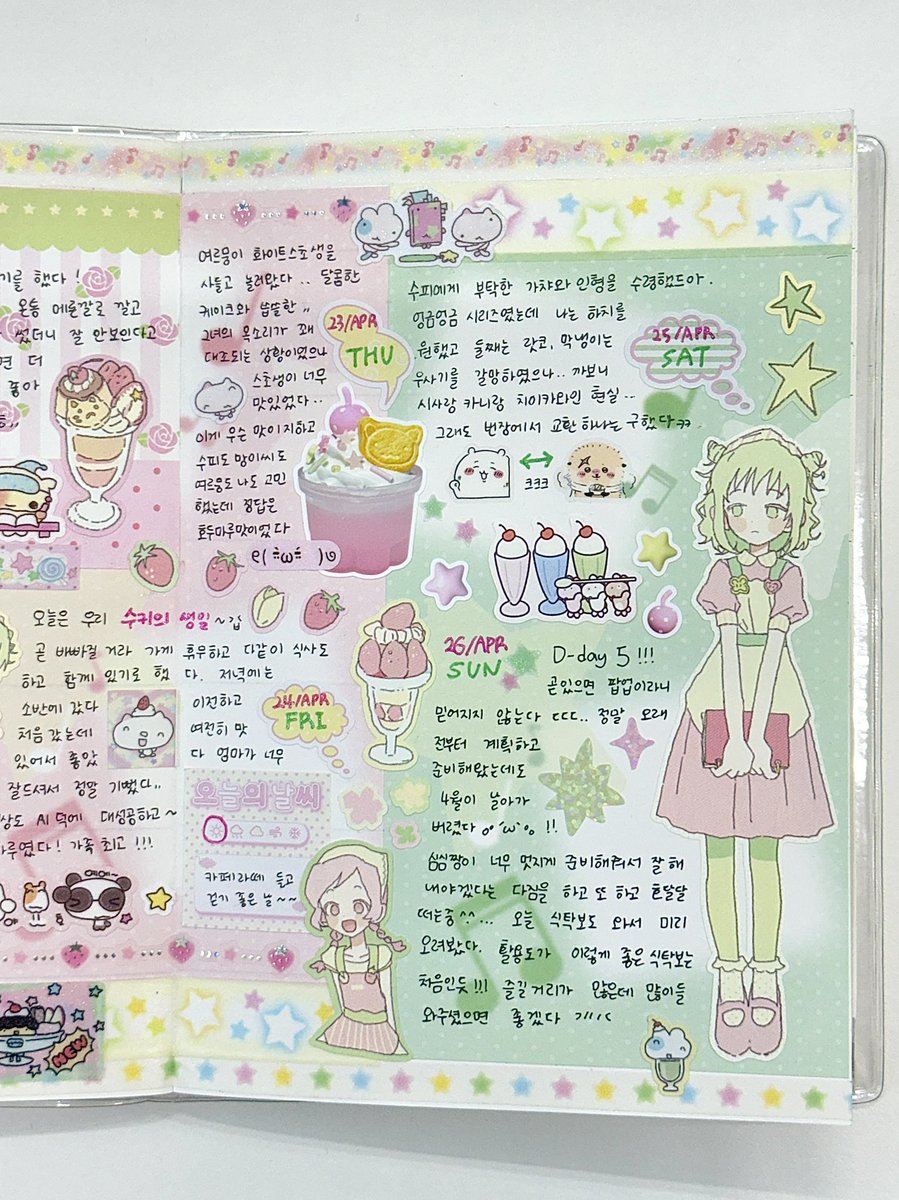 기를 했다!
온통 메론깔로 깔고
썼더니 잘 안보인다고
면 더
좋아
여르뭉이 화이트스초생을
사들고 놀러왔다.. 달콤한
케이크와 씁쓸한,,
그녀의 목소리가 꽤
대조되는 상황이었으나
스초생이 너무
맛있었다..
23/APR
THU
이게 무슨 맛이지하고
수피도 망이씨도
여르뭉도 나도 고민
했는데 정답은
호두마루맛이었다
오늘은 우리 수키의 생일~갑
곧 바빠질 거라 가게 휴무하고 다같이 식사도
하고 함께 있기로 했다. 저녁에는
소반에 갔다 이전하고
처음 갔는데 여전히 맛
있어서 좋았다 엄마가 너무
잘드셔서 정말 기뻤다,,
상도 AI 덕에 대성공하고~
하루였다! 가족 최고!!!
24/APR
FRI
오늘의날씨
카페라떼 들고
걷기 좋은 날~~
NEW
수피에게 부탁한 가챠와 인형을 수령했드아.
엉금엉금 시리즈였는데 나는 하치를
원했고 둘째는 랏코, 막냉이는
우사기를 갈망하였으나.. 까보니
시사랑 카니랑 치이카와인 현실..
그래도 번장에서 교환 하나는 구했다ㅋㅋ.
25/APR
SAT
ㅋㅋㅋ
26/APR
SUN
D-day 5!!!
곧있으면 팝업이라니
믿어지지 않는다 ㄷㄷㄷ.. 정말 오래
전부터 계획하고
준비해왔는데도
4월이 날아가
버렸다 !!
심심짱이 너무 멋지게 준비해줘서 잘 해
내야겠다는 다짐을 하고 또 하고 흐달달
떠는중^^... 오늘 식탁보도 와서 미리
오려봤다. 활용도가 이렇게 좋은 식탁보는
처음인듯!!! 즐길거리가 많은데 많이들
와주셨으면 좋겠다